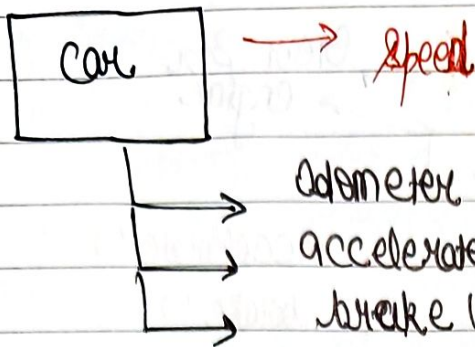 car
speed
odometer
accelerate
brake (